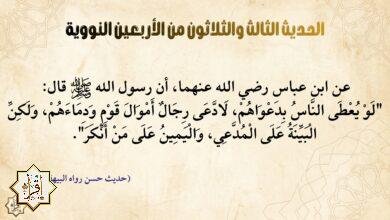 الحديث الثالث والثلاثون من الأربعين النووية
عن ابن عباس رضي الله عنهما، أن رسول الله ﷺ قال:
"لَوْ يُعْطَى النَّاسُ بِدَعْوَاهُمْ، لَادَّعَى رِجَالٌ أَمْوَالَ قَوْمٍ وَدِمَاءَهُمْ، وَلَكِنِ
البَيِّنَةُ عَلَى المُدَّعِي، وَالْيَمِينُ عَلَى مَنْ أَنْكَرَ".
(حديث حسن رواه البيه